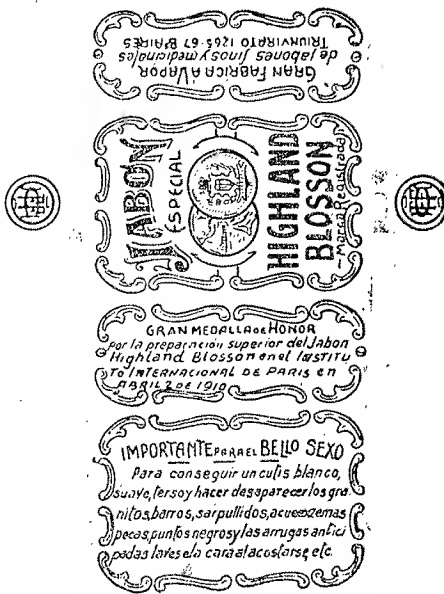 GRAN FABRICA A VAPOR
de jabones finos y medicinales
TRIUNVIRATO 1265-67 Bs AIRES
JABON
ESPECIAL
HIGHLAND
BLOSSON
—Marca Registrada—
GRAN MEDALLA DE HONOR
por la preparación superior del Jabon
Highland Blosson en el INSTITU
TO INTERNACIONAL DE PARIS en
ABRIL 2 DE 1910
IMPORTANTE PARA EL BELLO SEXO
Para conseguir un cutis blanco,
suave, terso y hacer desaparecer los gra
nitos, barros, sarpullidos, acue eczemas
pecas, puntos negros y las arrugas antici
padas lavese la cara al acostarse, etc.